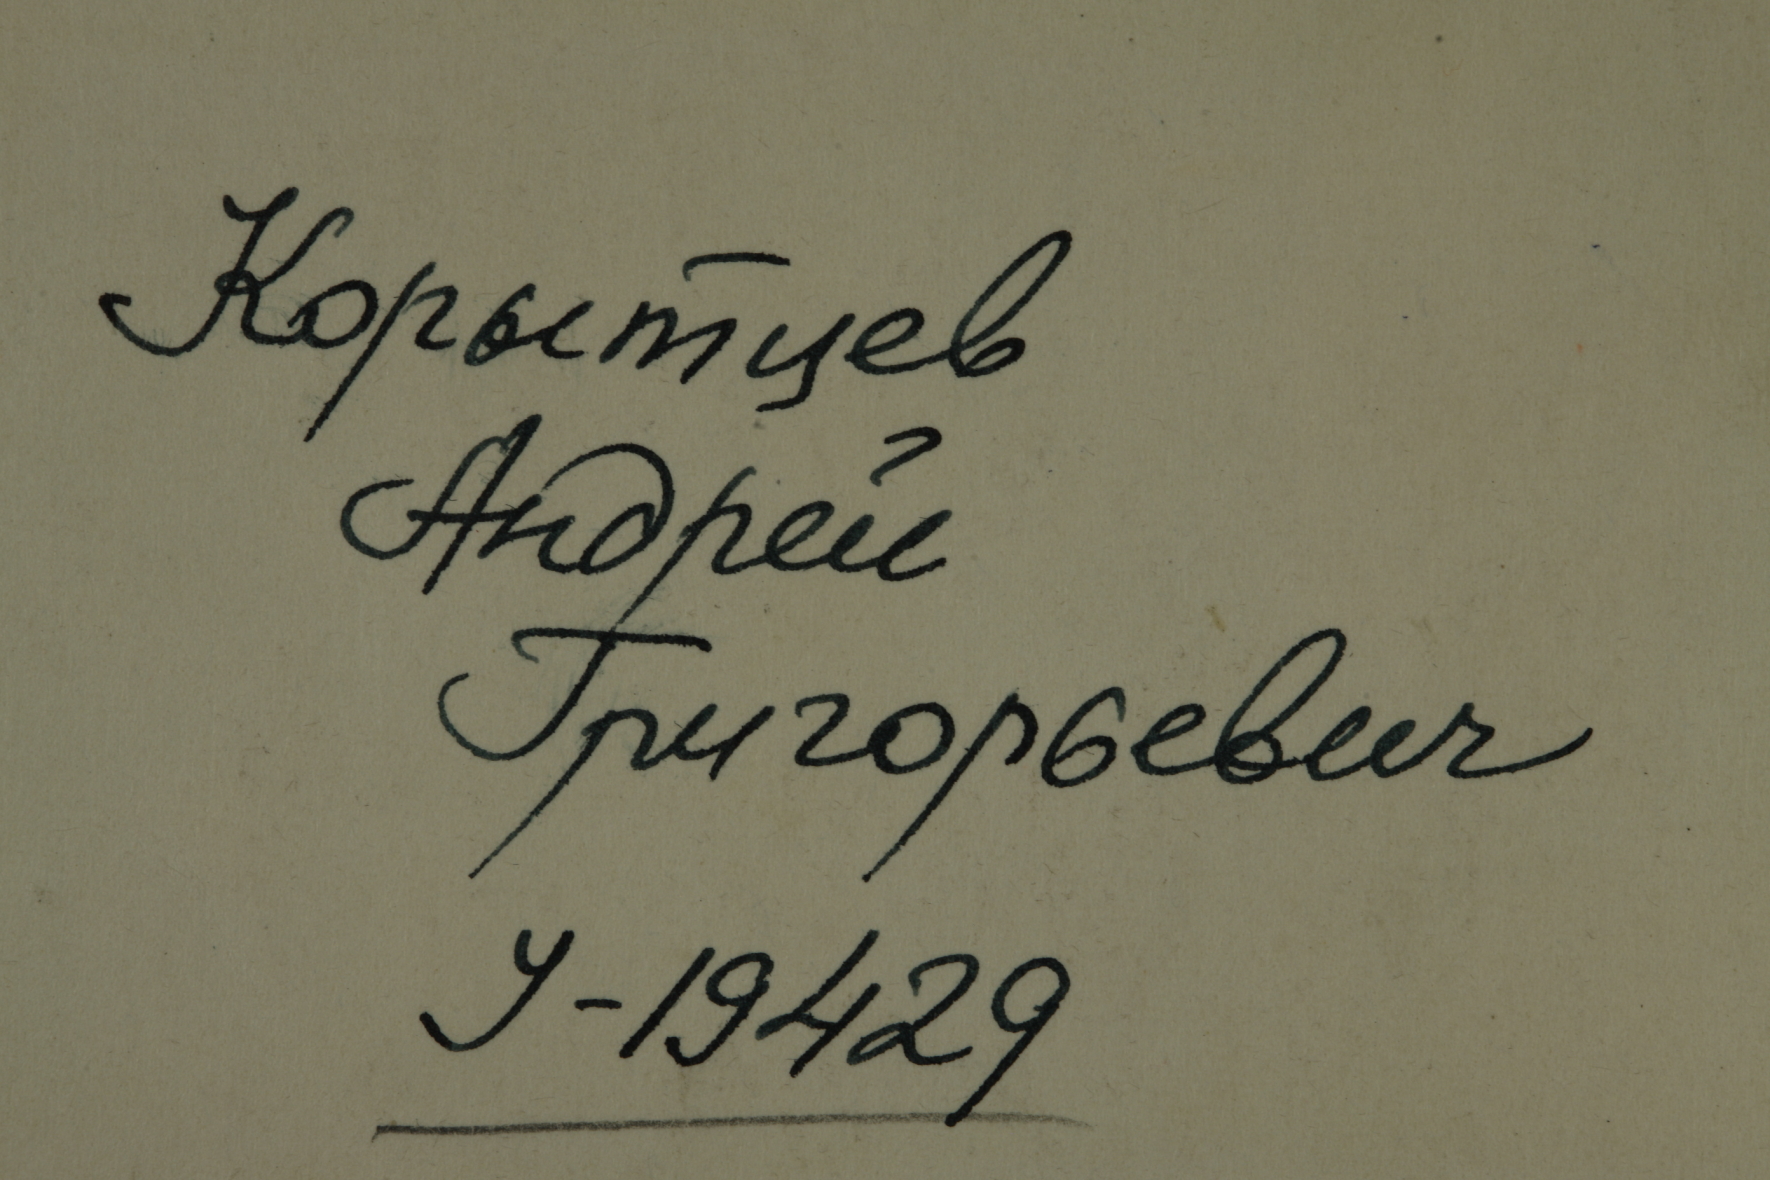 Корытцев
Андрей
Григорьевич
У-19429